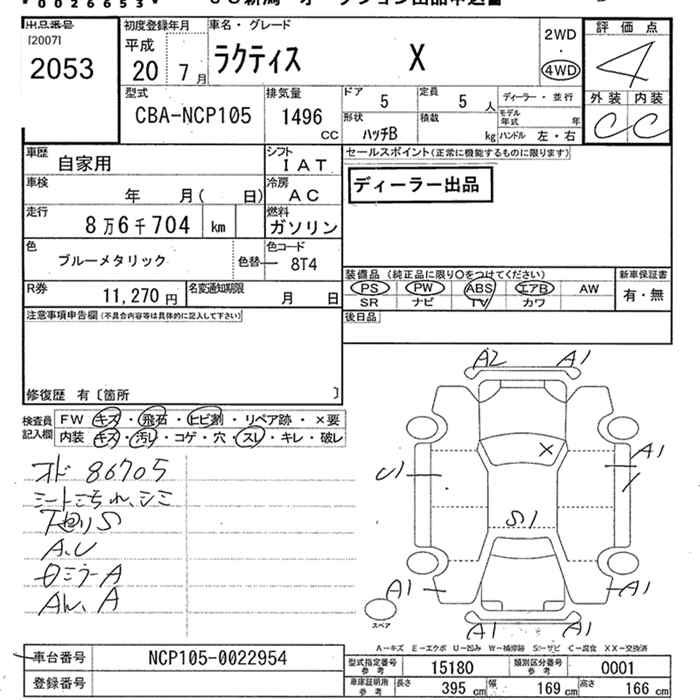 0026653
出品番号
[2007]
2053
初度登録年月
平成
20 7月
車名・グレード
ラクティス X
2WD
・
4WD
評価点
4
外装 内装
C C
型式
CBA-NCP105
排気量
1496
CC
ドア
5
定員
5人
ディーラー・並行
モデル年式 年
形状
ハッチB
積載
kg
ハンドル 左・右
車歴
自家用
シフト
IAT
セールスポイント(正常に機能するものに限ります)
ディーラー出品
車検
年 月( 日)
冷房
AC
走行
8万6千704 km
燃料
ガソリン
色
ブルーメタリック
色替
色コード
8T4
装備品(純正品に限り○をつけてください)
PS PW ABS エアB AW
SR ナビ TV カワ
新車保証書
有・無
R券
11,270円
名変通知期限
月 日
後日品
注意事項申告欄(不具合内容等は具体的に記入して下さい)
修復歴 有〔箇所 〕
検査員記入欄
FW キズ・飛石・ヒビ割・リペア跡・×要
内装 キズ・汚レ・コゲ・穴・スレ・キレ・破レ
オド 86705
シートこすれ、シミ
下廻りS
A、U
A
A
A2 A1
X
U1
A1
S1
A1 A1
A1 A1
スペア
A-キズ E-エクボ U-凹み W-補修跡 S-サビ C-腐食 XX-交換済
車台番号
NCP105-0022954
登録番号
型式指定番号参考
15180
類別区分番号参考
0001
車庫証明用参考
長さ 395cm
幅 169cm
高さ 166cm